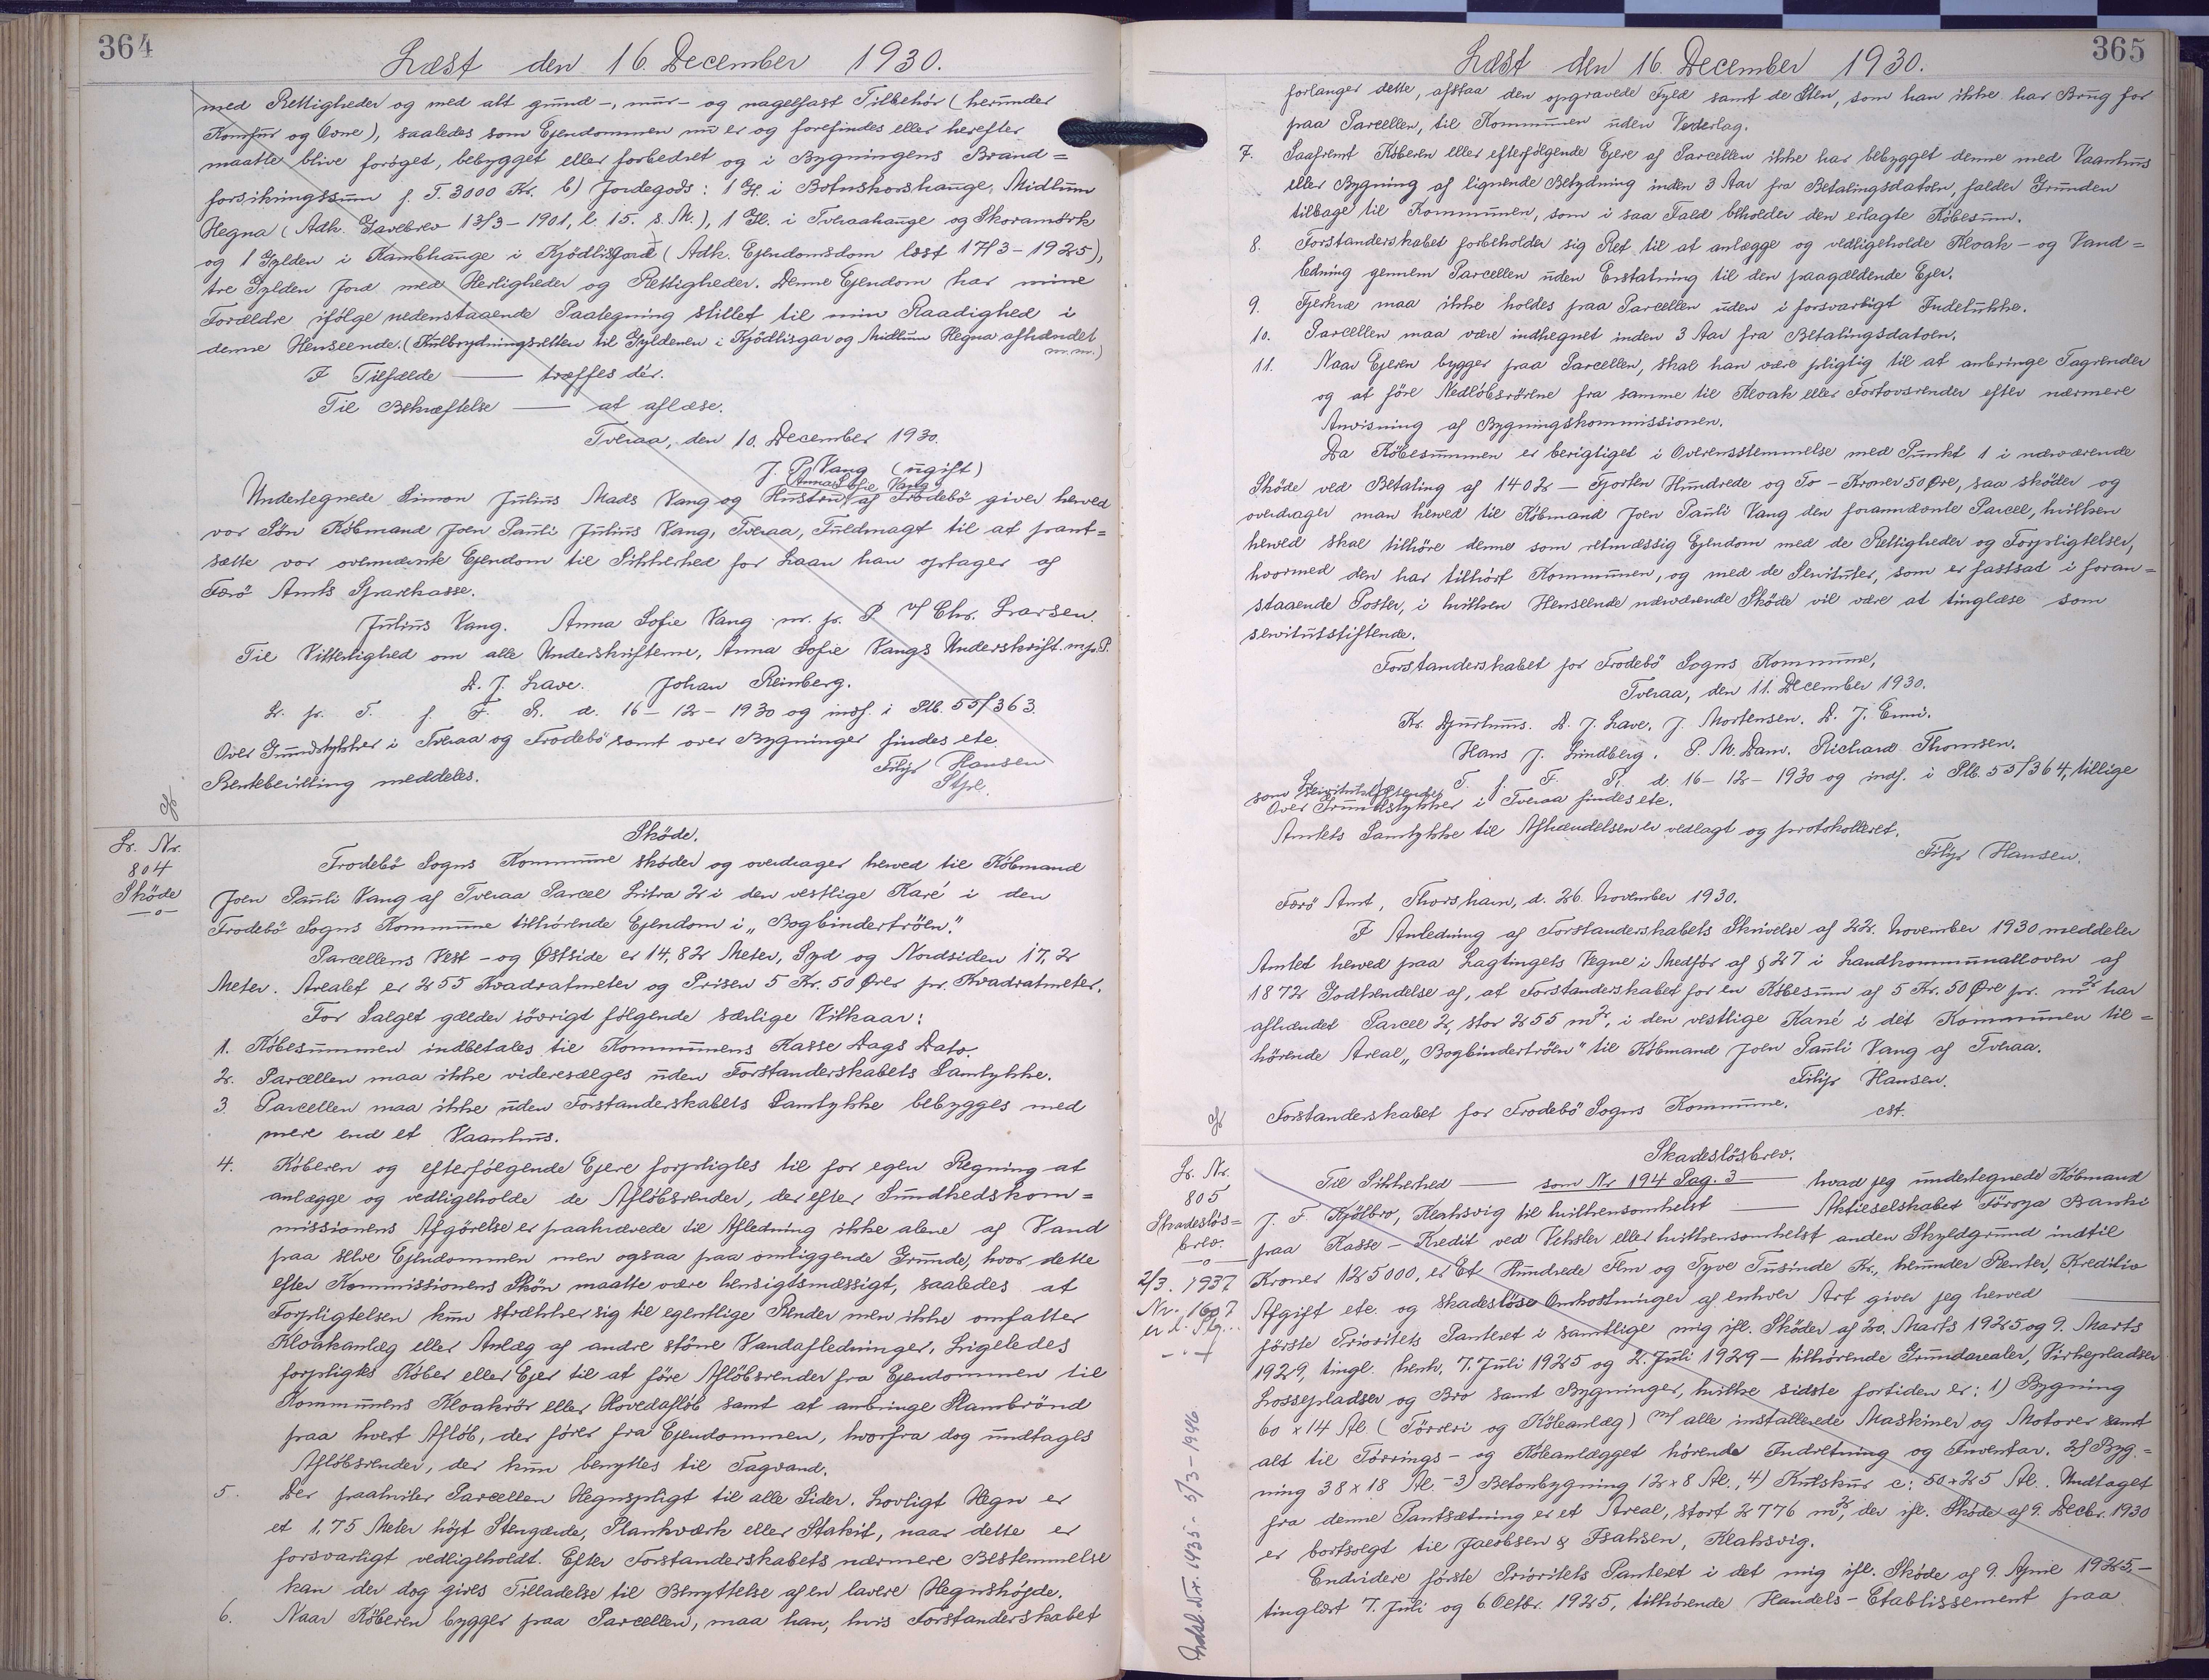 364
Læst den 16. December 1930.
med Rettigheder og med alt grund-, mur- og nagelfast Tilbehør (herunder
Komfur og Ovne), saaledes som Ejendommen nu er og forefindes eller herefter
maatte blive forøget, bebygget eller forbedret og i Bygningens Brand=
forsikringssum p. T. 3000 Kr. b) Jordegods: 1 Gl. i Botnskorshauge, Midlum
Hegna (Adk. Gavebrev 13/3-1901, l. 15. s. M.), 1 Gl. i Tveraahauge og Skoramörk
og 1 Gylden i Kambhauge i Kjödlisfjord (Adk. Ejendomsdom læst 17/3-1925),
tre Gylden Jord med Herligheder og Rettigheder. Denne Ejendom har mine
Forældre ifölge nedenstaaende Paategning stillet til min Raadighed i
denne Henseende. (Kulbrydningsretten til Gyldenen i Kjödlisgar og Midlum Hegna afhændet
m. m.)
I Tilfælde — træffes dér.
Til Bekræftelse — at aflæse.
Tveraa, den 10. December 1930.
J. P. Vang (ugift)
Anna Sofie Vang
Undertegnede Simon Julius Mads Vang og Hustru af Frodebö giver herved
vor Søn Købmand Joen Pauli Julius Vang, Tveraa, Fuldmagt til at pant=
sætte vor ovennævnte Ejendom til Sikkerhed for Laan han optager af
Færö Amts Sparekasse.
Julius Vang. Anna Sofie Vang m. p. P v/ Chr. Larsen.
Til Vitterlighed om alle Underskrifterne, Anna Sofie Vangs Underskrift m. p. P.
D. J. Lave. Johan Reinberg.
L. p. T. f. F. R. d. 16-12-1930 og indf. i Plb. 55/363.
Over Grundstykker i Tveraa og Frodebö samt over Bygninger findes etc.
Rentebevilling meddeles.
Filip Hansen
Stpl.
Lr. Nr.
804
Sköde
—o—
Sköde.
Frodebö Sogns Kommune skøder og overdrager herved til Købmand
Joen Pauli Vang af Tveraa Parcel Litra 2 i den vestlige Karé i den
Frodebö Sogns Kommune tilhørende Ejendom i „Bogbindertröen".
Parcellens Vest- og Østside er 14,82 Meter, Syd og Nordsiden 17,2
Meter. Arealet er 255 Kvadratmeter og Prisen 5 Kr. 50 Ører pr. Kvadratmeter.
For Salget gælder iövrigt fölgende særlige Vilkaar:
1. Købesummen indbetales til Kommunens Kasse Dags Dato.
2. Parcellen maa ikke videresælges uden Forstanderskabets Samtykke.
3. Parcellen maa ikke uden Forstanderskabets Samtykke bebygges med
mere end et Vaanhus.
4. Köberen og efterfølgende Ejere forpligtes til for egen Regning at
anlægge og vedligeholde de Afløbsrender, der efter Sundhedskom=
missionens Afgörelse er paakrævede til Afledning ikke alene af Vand
paa selve Ejendommen men ogsaa paa omliggende Grunde, hvor dette
efter Kommissionens Skön maatte være hensigtsmæssigt, saaledes at
Forpligtelsen kun strækker sig til egentlige Render men ikke omfatter
Kloakanlæg eller Anlæg af andre större Vandafledninger. Ligeledes
forpligtes Køber eller Ejer til at före Aflöbsrender fra Ejendommen til
Kommunens Kloakrör eller Hovedafløb samt at anbringe Slambrönd
paa hvert Afløb, der fører fra Ejendommen, hvorfra dog undtages
Afløbsrender, der kun benyttes til Tagvand.
5. Der paahviler Parcellen Hegnspligt til alle Sider. Lovligt Hegn er
et 1,75 Meter højt Stengærde, Plankværk eller Stakit, naar dette er
forsvarligt vedligeholdt. Efter Forstanderskabets nærmere Bestemmelse
kan der dog gives Tilladelse til Benyttelse af en lavere Hegnshøjde.
6. Naar Köberen bygger paa Parcellen, maa han, hvis Forstanderskabet
365
Læst den 16. December 1930.
forlanger dette, afstaa den opgravede Fyld samt de Sten, som han ikke har Brug for
paa Parcellen, til Kommunen uden Vederlag.
7. Saafremt Køberen eller efterfølgende Ejere af Parcellen ikke har bebygget denne med Vaanhus
eller Bygning af lignende Betydning inden 3 Aar fra Betalingsdatoen, falder Grunden
tilbage til Kommunen, som i saa Fald beholder den erlagte Købesum.
8. Forstanderskabet forbeholder sig Ret til at anlægge og vedligeholde Kloak- og Vand=
ledning gennem Parcellen uden Erstatning til den paagældende Ejer.
9. Fjerkræ maa ikke holdes paa Parcellen uden i forsvarligt Indelukke.
10. Parcellen maa være indhegnet inden 3 Aar fra Betalingsdatoen.
11. Naar Ejeren bygger paa Parcellen, skal han være pligtig til at anbringe Tagrender
og at före Nedløbsrörene fra samme til Kloak eller Fortovsrender efter nærmere
Anvisning af Bygningskommissionen.
Da Købesummen er berigtiget i Overensstemmelse med Punkt 1 i nærværende
Sköde ved Betaling af 1402 — Fjorten Hundrede og To - Kroner 50 Øre, saa sköder og
overdrager man herved til Købmand Joen Pauli Vang den forannævnte Parcel, hvilken
herved skal tilhöre denne som retmæssig Ejendom med de Rettigheder og Forpligtelser,
hvormed den har tilhört Kommunen, og med de Servituter, som er fastsat i foran=
staaende Poster, i hvilken Henseende nærværende Sköde vil være at tinglæse som
servitutstiftende.
Forstanderskabet for Frodebö Sogns Kommune,
Tveraa, den 11. December 1930.
Kr. Djurhuus. D. J. Lave. J. Mortensen. D. J. Enni.
Hans J. Lindberg. P. M. Dam. Richard Thomsen.
T. f. F. R. d. 16-12-1930 og indf. i Plb. 55/364, tillige
som Servitutstiftende
Over Grundstykker i Tveraa findes etc.
Amtets Samtykke til Afhændelsen er vedlagt og protokolleret.
Filip Hansen.
Færö Amt, Thorshavn, d. 26. November 1930.
I Anledning af Forstanderskabets Skrivelse af 22. November 1930 meddeler
Amtet herved paa Lagtingets Vegne i Medför af § 27 i Landkommunalloven af
1872 Godkendelse af, at Forstanderskabet for en Købesum af 5 Kr. 50 Øre pr. m² har
afhændet Parcel 2, stor 255 m², i den vestlige Karé i det Kommunen til=
hörende Areal „Bogbindertröen" til Købmand Joen Pauli Vang af Tveraa.
Filip Hansen.
Forstanderskabet for Frodebö Sogns Kommune. cst.
Lr. Nr.
805
Skadesløs=
brev.
—o—
2/3. 1937
Nr. 1607
Skadeslösbrev.
Til Sikkerhed — som Nr 194 Pag. 3 — hvad jeg undertegnede Købmand
J. F. Kjölbro, Klaksvig til hvilkensomhelst — Aktieselskabet Föroya Banki
paa Kasse-Kredit ved Veksler eller hvilkensomhelst anden Skyldgrund indtil
Kroner 125000, er Et Hundrede Fem og Tyve Tusinde Kr., herunder Renter, Kreditiv
Afgift etc. og skadesløse Omkostninger af enhver Art giver jeg herved
første Prioritets Panteret i samtlige mig ifl. Sköder af 20. Marts 1925 og 9. Marts
1929, tingl. henh. 7. Juli 1925 og 2. Juli 1929 — tilhörende Grundarealer, Virkepladser
Lossepladser og Bro samt Bygninger, hvilke sidste fortiden er: 1) Bygning
60 x 14 Al. (Törreri og Köleanlæg) m/ alle installerede Maskiner og Motorer samt
alt til Törrings- og Köleanlægget hörende Indretning og Inventar. 2) Byg=
ning 38 x 18 Al. - 3) Betonbygning 12 x 8 Al., 4) Kulskur c: 50 x 25 Al. Undtaget
fra denne Pantsætning er et Areal, stort 2776 m², der ifl. Sköde af 9. Decbr. 1930
er bortsolgt til Jacobsen & Isaksen, Klaksvig.
Endvidere første Prioritets Panteret i det mig ifl. Sköde af 9. April 1925, -
tinglæst 7. Juli og 6 Octbr. 1925, tilhörende Handels-Etablissement paa
Udsl. Nr. 1435 - 5/3-1946